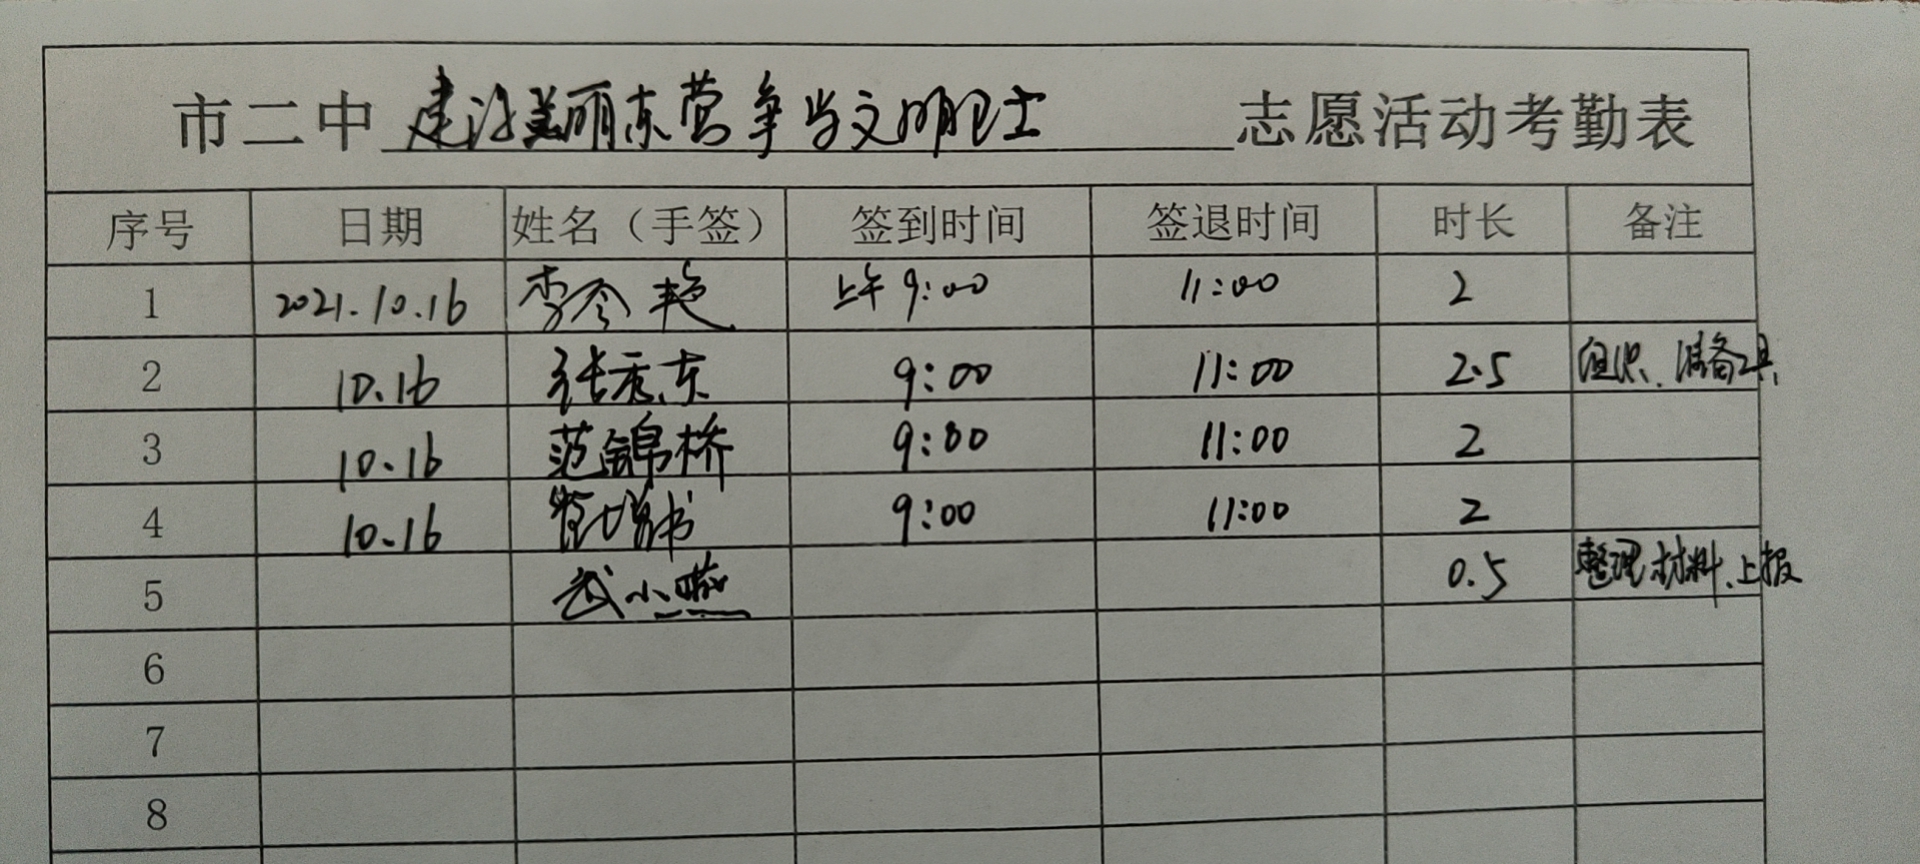 市二中 建设美丽东营争当文明卫士 志愿活动考勤表
序号 日期 姓名（手签） 签到时间 签退时间 时长 备注
1 2021.10.16 李冬艳 上午9:00 11:00 2
2 10.16 张秀东 9:00 11:00 2.5 组织、准备工具
3 10.16 范锦桥 9:00 11:00 2
4 10.16 管增书 9:00 11:00 2
5 武小燕 0.5 整理材料、上报
6
7
8